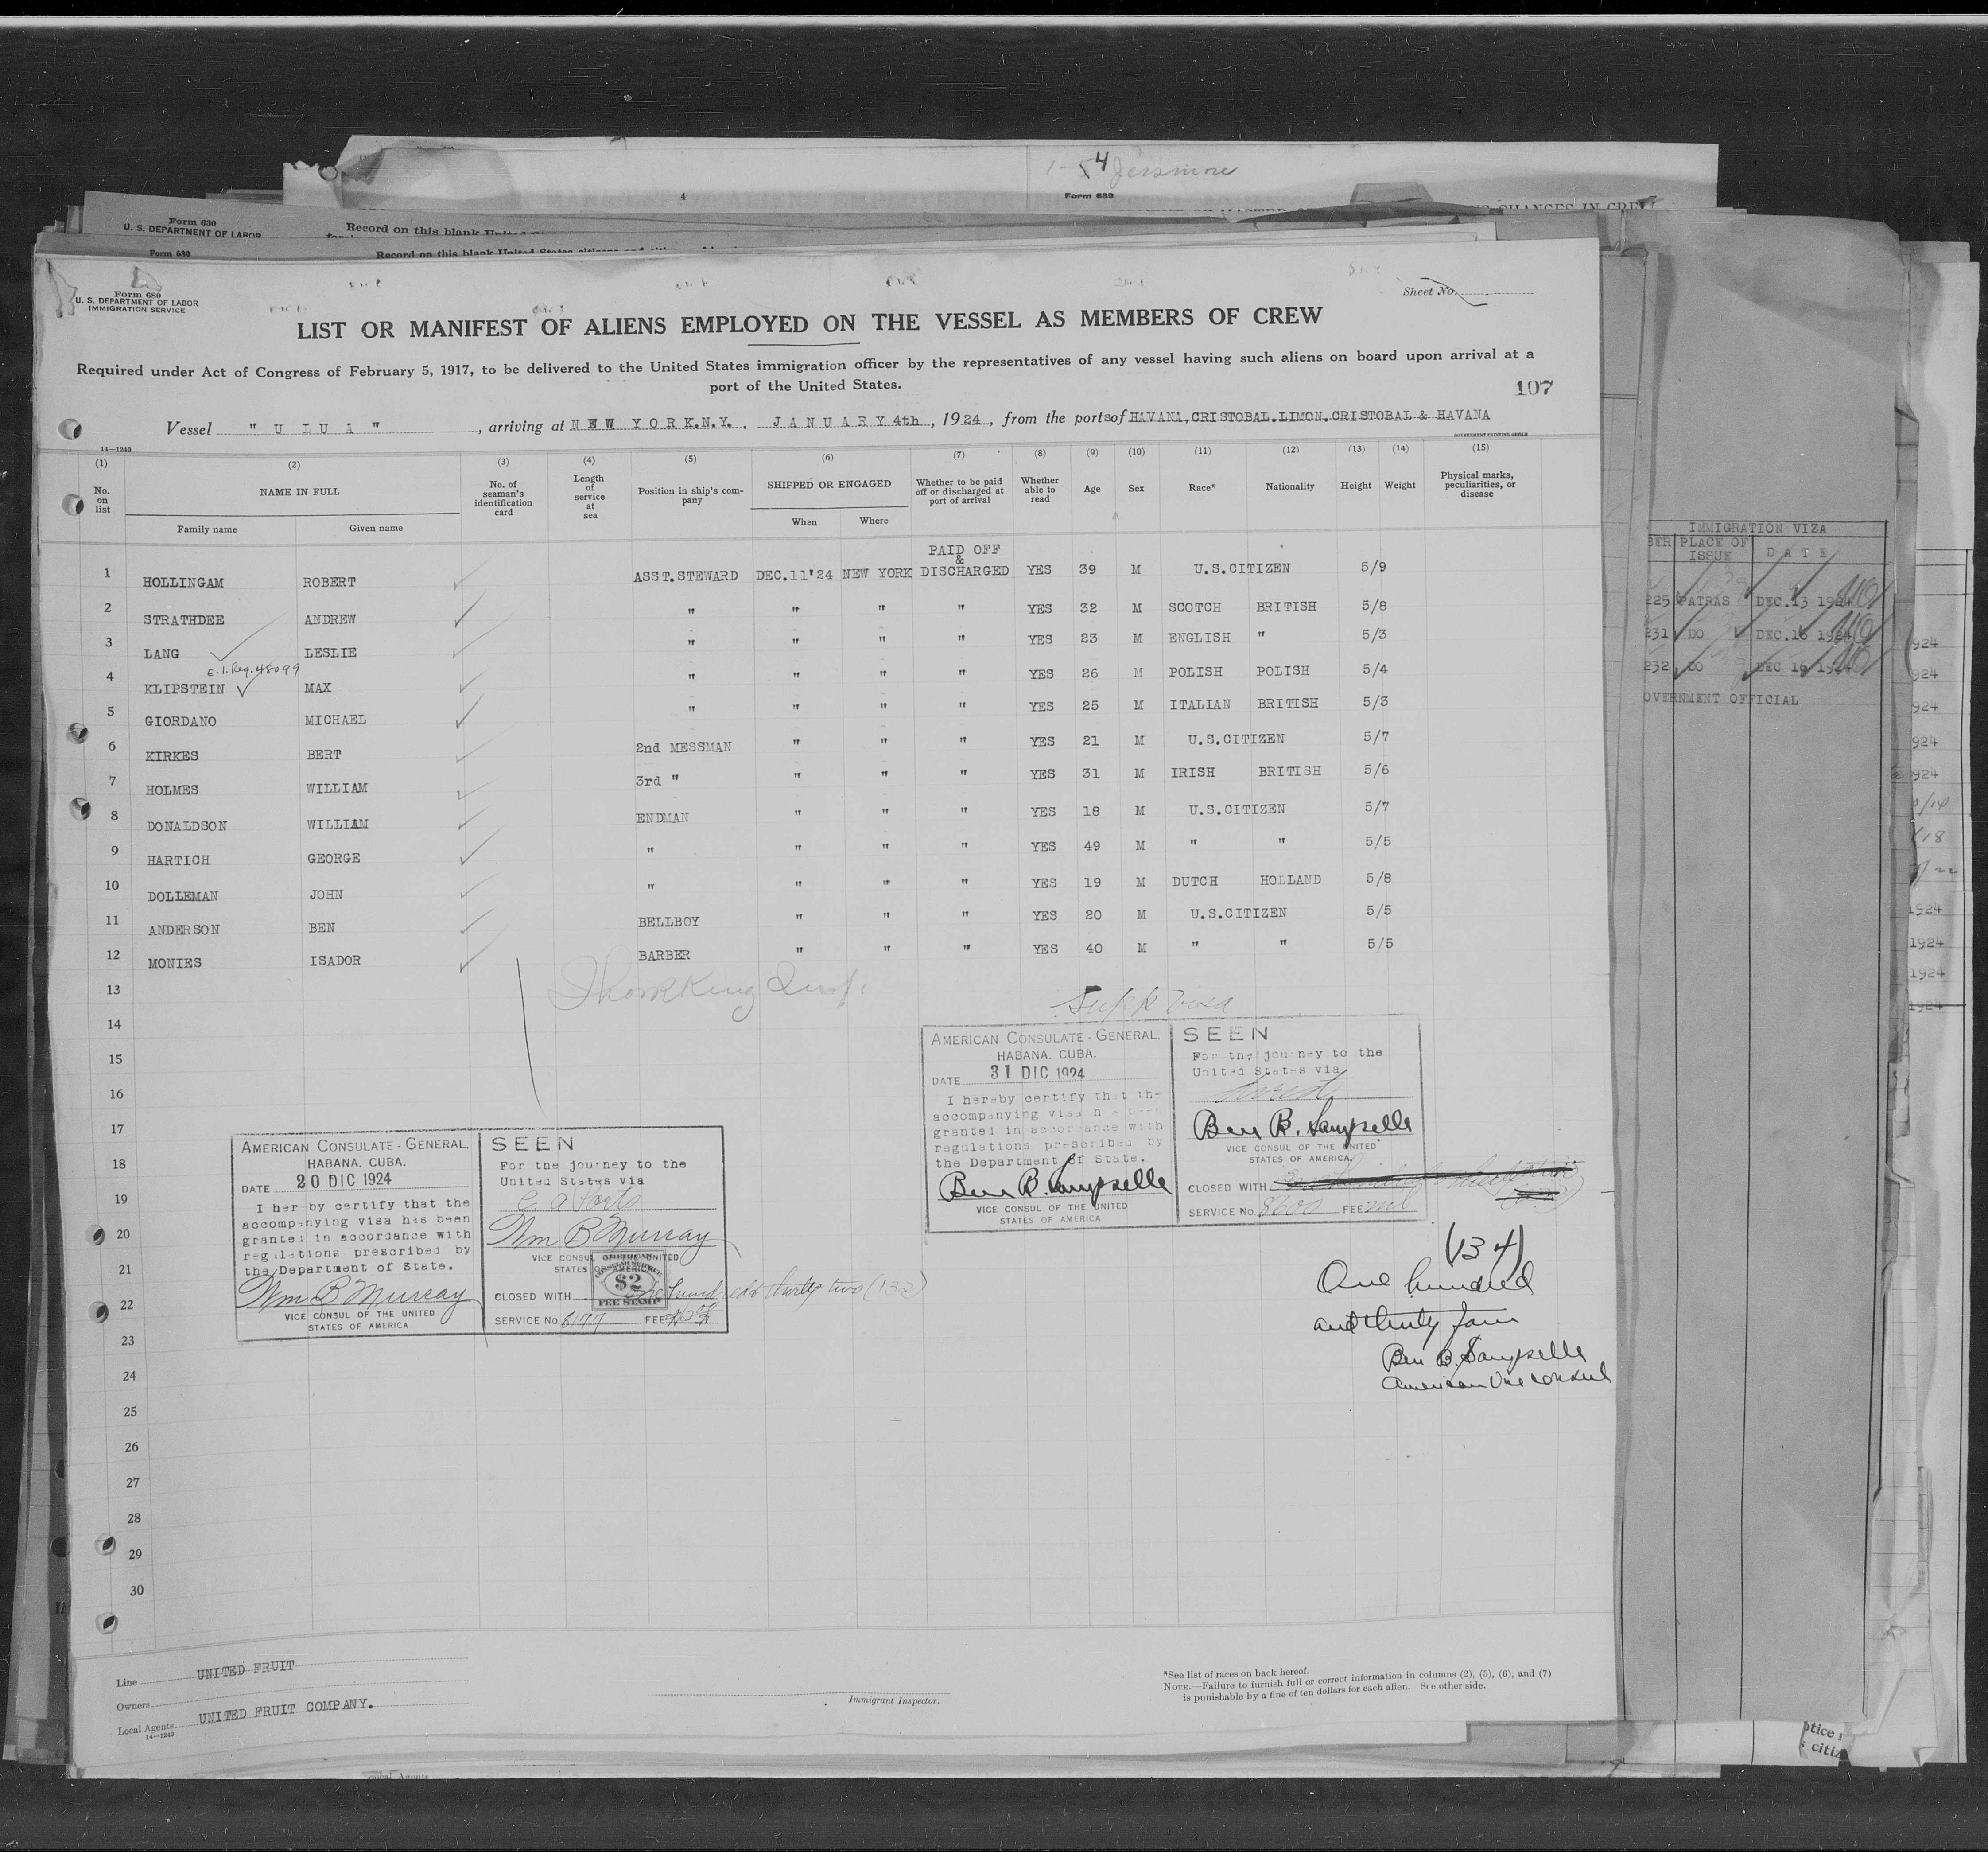 1-54 Jessmore
4
Form 689
Form 630
U. S. DEPARTMENT OF LABOR
Record on this blank United
CHANGES IN CREW
Form 630
Record on this blank United States citizens and
Form 680
U. S. DEPARTMENT OF LABOR
IMMIGRATION SERVICE
Sheet No.
LIST OR MANIFEST OF ALIENS EMPLOYED ON THE VESSEL AS MEMBERS OF CREW
Required under Act of Congress of February 5, 1917, to be delivered to the United States immigration officer by the representatives of any vessel having such aliens on board upon arrival at a
port of the United States.
107
Vessel " U L U A " , arriving at NEW YORK.N.Y. , JANUARY 4th , 1924 , from the ports of HAVANA,CRISTOBAL.LIMON.CRISTOBAL & HAVANA
14—1240
GOVERNMENT PRINTING OFFICE
(1) (2) (3) (4) (5) (6) (7) (8) (9) (10) (11) (12) (13) (14) (15)
No. on list NAME IN FULL No. of seaman's identification card Length of service at sea Position in ship's company SHIPPED OR ENGAGED Whether to be paid off or discharged at port of arrival Whether able to read Age Sex Race* Nationality Height Weight Physical marks, peculiarities, or disease
Family name Given name When Where
PAID OFF
&
1 HOLLINGAM ROBERT ASST.STEWARD DEC.11'24 NEW YORK DISCHARGED YES 39 M U.S.CITIZEN 5/9
2 STRATHDEE ANDREW " " " " YES 32 M SCOTCH BRITISH 5/8
3 LANG LESLIE " " " " YES 23 M ENGLISH " 5/3
E.I.Reg.48099
4 KLIPSTEIN MAX " " " " YES 26 M POLISH POLISH 5/4
5 GIORDANO MICHAEL " " " " YES 25 M ITALIAN BRITISH 5/3
6 KIRKES BERT 2nd MESSMAN " " " YES 21 M U.S.CITIZEN 5/7
7 HOLMES WILLIAM 3rd " " " " YES 31 M IRISH BRITISH 5/6
8 DONALDSON WILLIAM ENDMAN " " " YES 18 M U.S.CITIZEN 5/7
9 HARTICH GEORGE " " " " YES 49 M " " 5/5
10 DOLLEMAN JOHN " " " " YES 19 M DUTCH HOLLAND 5/8
11 ANDERSON BEN BELLBOY " " " YES 20 M U.S.CITIZEN 5/5
12 MONIES ISADOR BARBER " " " YES 40 M " " 5/5
13
14
15
16
17
18
19
20
21
22
23
24
25
26
27
28
29
30
Supp Visa
AMERICAN CONSULATE-GENERAL.
HABANA. CUBA.
DATE 31 DIC 1924
I hereby certify that the
accompanying visa has been
granted in accordance with
regulations prescribed by
the Department of State.
Ben B. Sampselle
VICE CONSUL OF THE UNITED
STATES OF AMERICA
SEEN
For the journey to the
United States via
direct
Ben B. Sampselle
VICE CONSUL OF THE UNITED
STATES OF AMERICA.
CLOSED WITH
SERVICE No. 8600 FEE nil
(134)
One hundred
and thirty four
Ben B. Sampselle
American Vice Consul
AMERICAN CONSULATE-GENERAL.
HABANA. CUBA.
DATE 20 DIC 1924
I hereby certify that the
accompanying visa has been
granted in accordance with
regulations prescribed by
the Department of State.
Wm B Murray
VICE CONSUL OF THE UNITED
STATES OF AMERICA
SEEN
For the journey to the
United States via
C. A. Ports
Wm B Murray
VICE CONSUL OF THE UNITED
STATES OF AMERICA
$2
FEE STAMP
CLOSED WITH One hundred & thirty two (132)
SERVICE No. 8177 FEE
Line UNITED FRUIT
Owners
Local Agents UNITED FRUIT COMPANY.
14—1240
Immigrant Inspector.
*See list of races on back hereof.
NOTE.—Failure to furnish full or correct information in columns (2), (5), (6), and (7)
is punishable by a fine of ten dollars for each alien. See other side.
IMMIGRATION VIZA
BER PLACE OF ISSUE DATE
225 PATRAS DEC.13 1924
231 DO DEC.16 1924
232 DO DEC 16 1924
OVERNMENT OFFICIAL
924
924
924
924
924
/18
1924
1924
1924
1924
otice
citiz